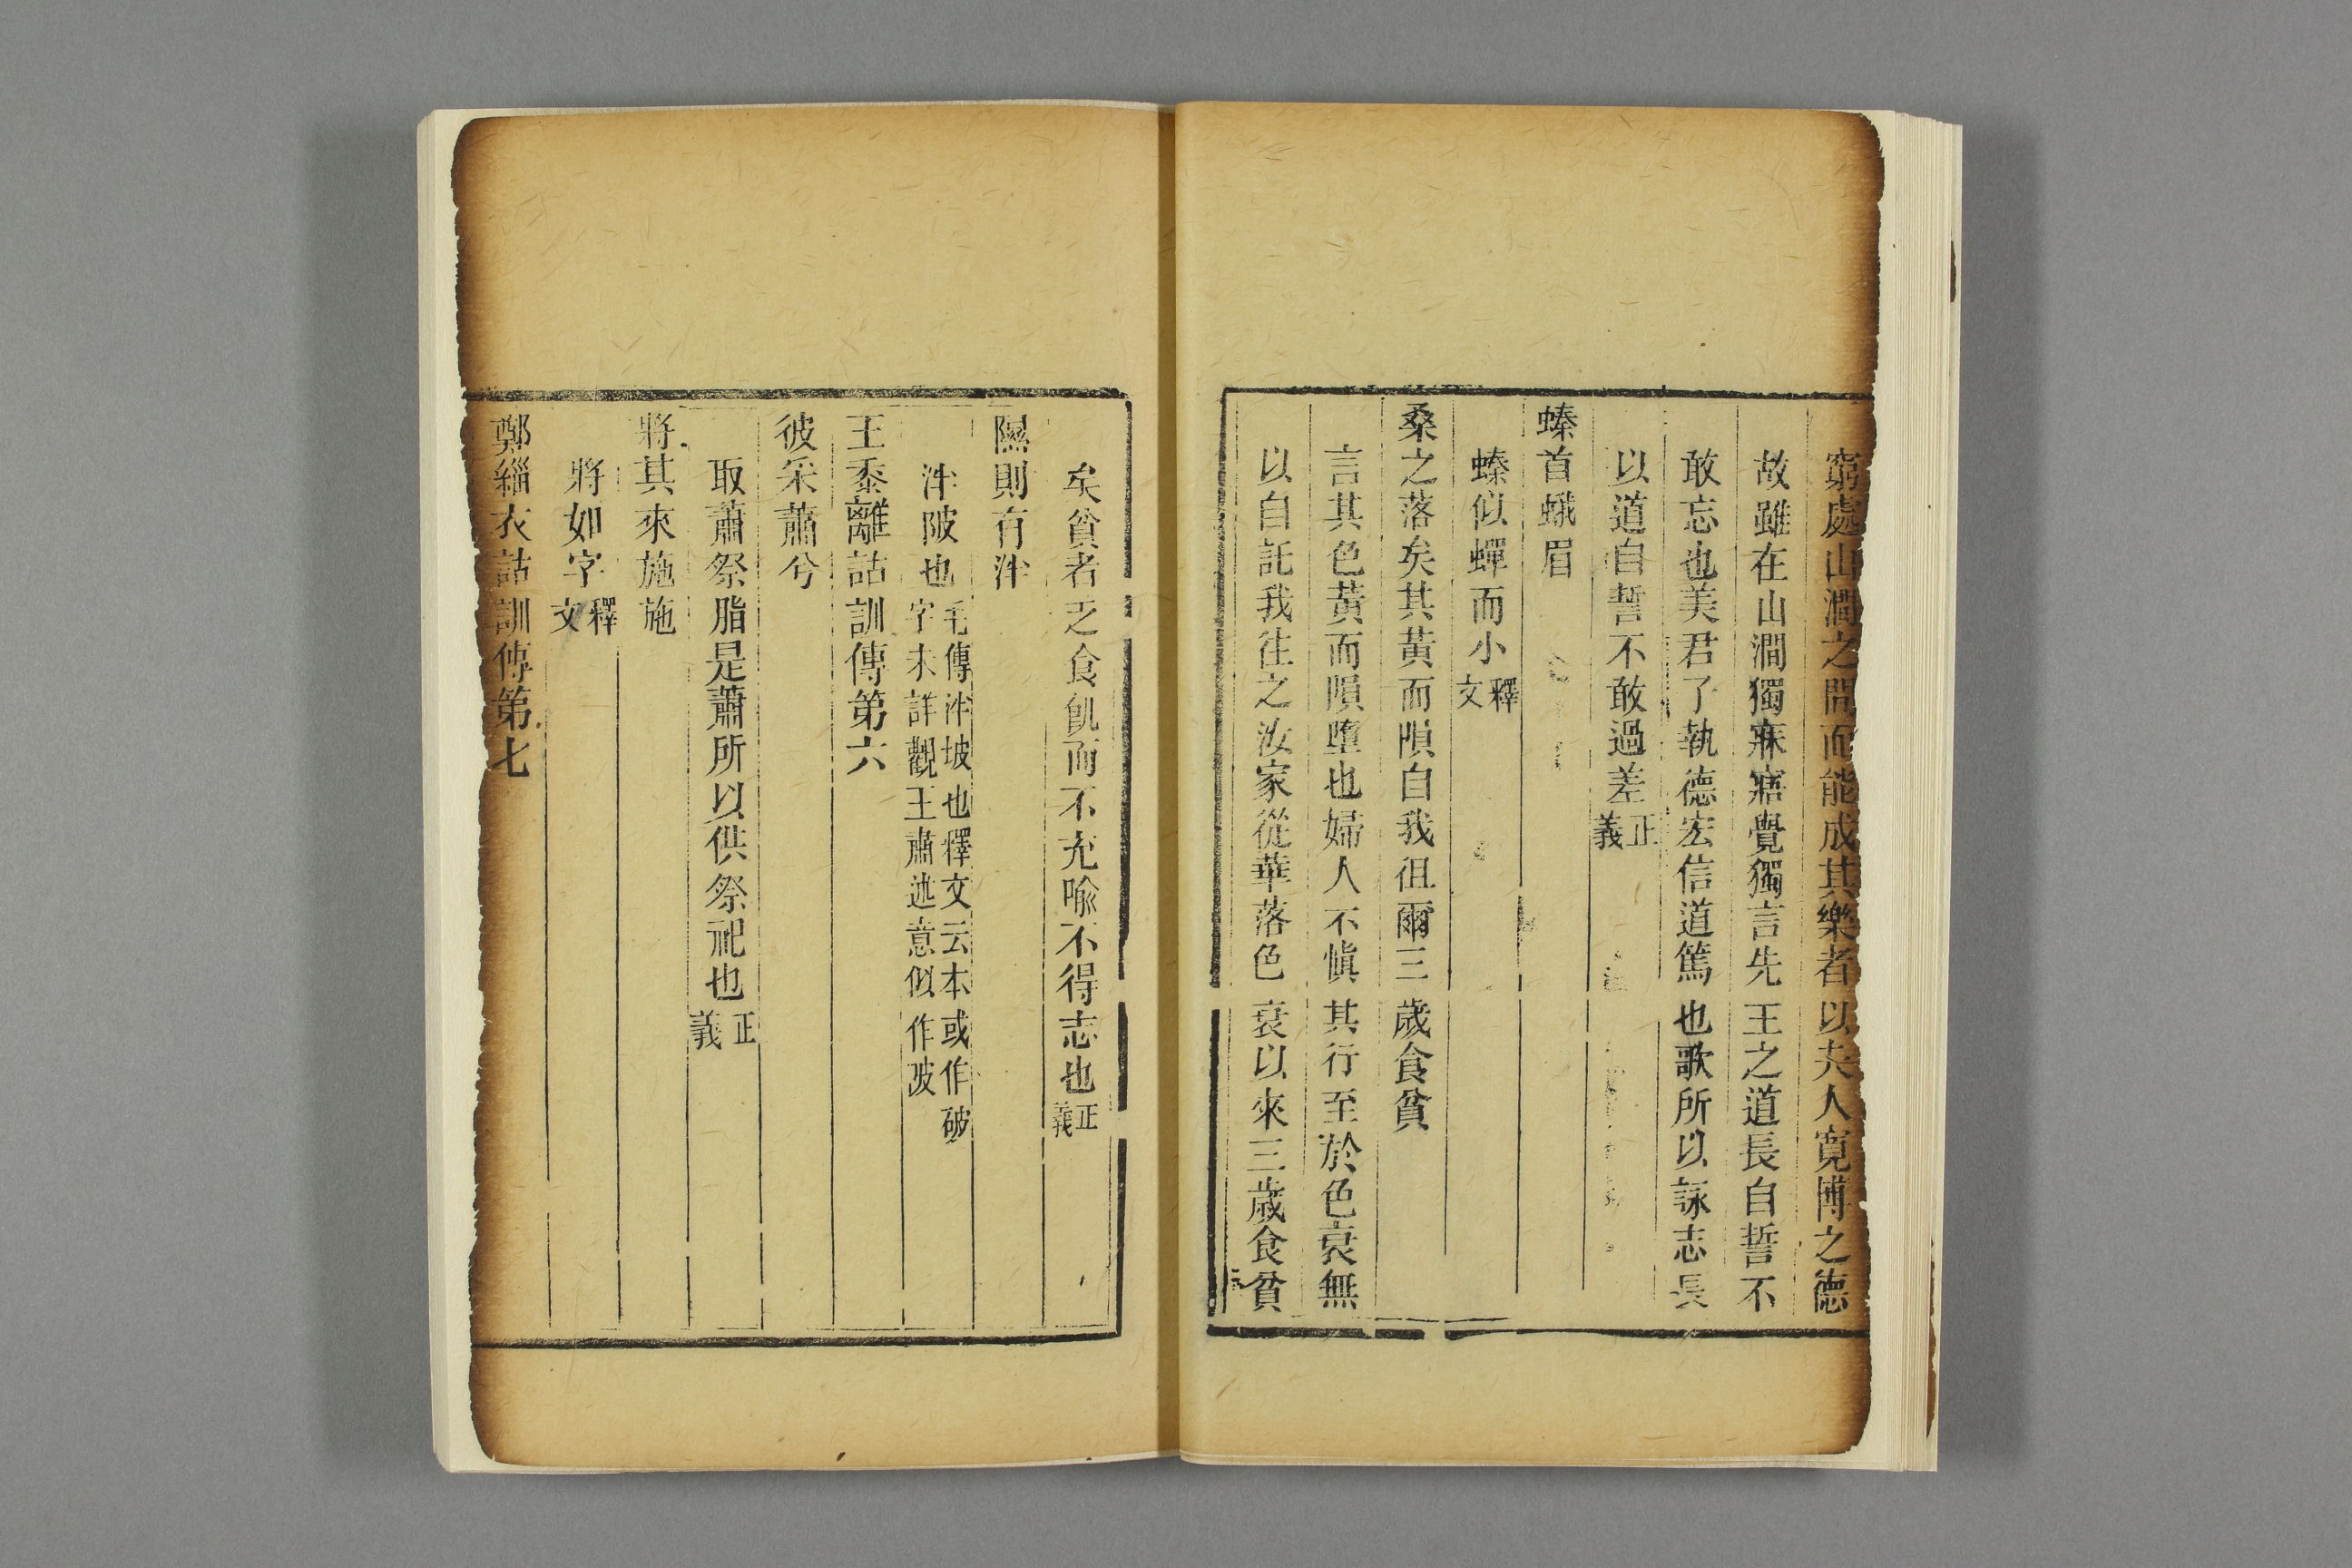 窮處山澗之間而能成其樂者以夫人寬博之德
故雖在山澗獨寐寤覺獨言先王之道長自誓不
敢忘也美君子執德宏信道篤也歌所以詠志長
以道自誓不敢過差正義
螓首蛾眉
螓似蟬而小釋文
桑之落矣其黃而隕自我徂爾三歲食貧
言其色黃而隕墮也婦人不慎其行至於色衰無
以自託我往之汝家從華落色衰以來三歲食貧
矣貧者乏食飢而不充喻不得志也正義
隰則有泮
泮陂也毛傳泮坡也釋文云本或作破
字未詳觀王肅述意似作陂
王黍離詁訓傳第六
彼采蕭兮
取蕭祭脂是蕭所以供祭祀也正義
將其來施施
將如字釋文
鄭緇衣詁訓傳第七